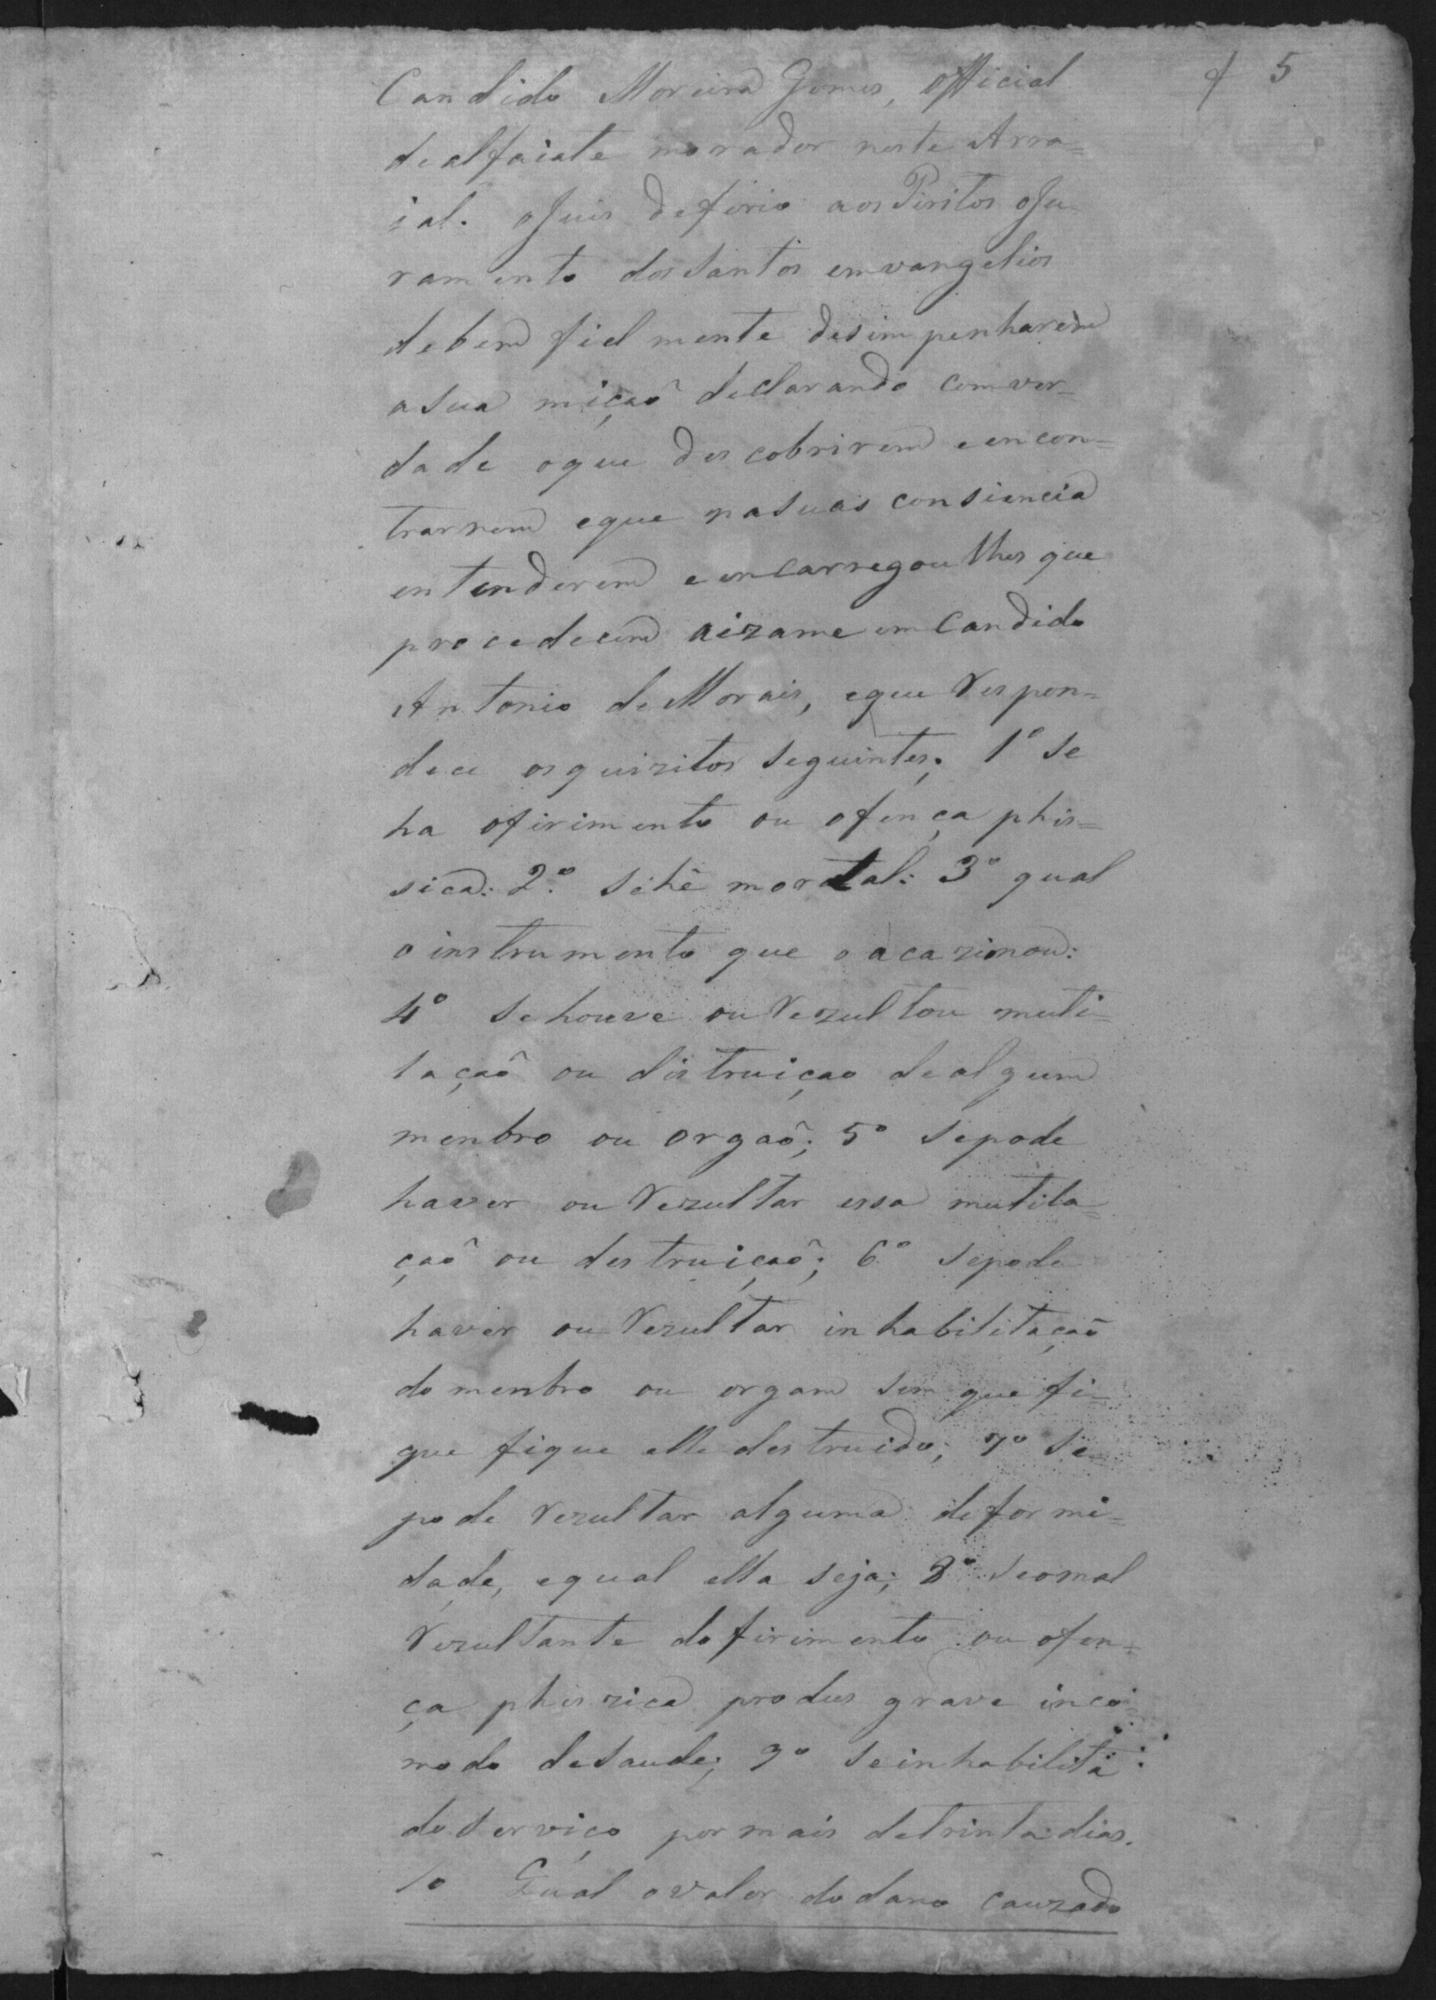 f 5
Candido Moreira Gomes, official
de alfaiate morador neste Arra=
ial. o Juis deferio aos Piritos o Ju-
ramento dos Santos emvangelios
de bem fielmente desimpenharem
a sua miçaõ declarando com ver=
dade o que descobrirem e encon=
trarrem e que na suas consiencia
entenderem e encarregou lhes que
procedecem aizame em Candido
Antonio de Morais, e que respon=
dece os quizitos seguintes; 1º se
ha ofirimento ou ofença phis=
sica: 2º. si hê mortal: 3º qual
o instrumento que o acazionou:
4º se houve ou rezultou muti-
laçaõ ou distruiçao de algum
menbro ou orgaõ; 5º se pode
haver ou rezultar essa mutila=
çaõ ou destruiçaõ; 6º se pode
haver ou rezultar inhabilitaçaõ
do menbro ou orgam sem que fi=
que fique elle destruido; 7º se
pode rezultar alguma deformi=
dade, e qual ella seja; 8º se o mal
rezultante do firimento ou ofen=
ça phizica produs grave inco-
modo de saude; 9º se inhabilita
do serviço por mais de trinta dias.
10 Qual o valor do dano cauzado